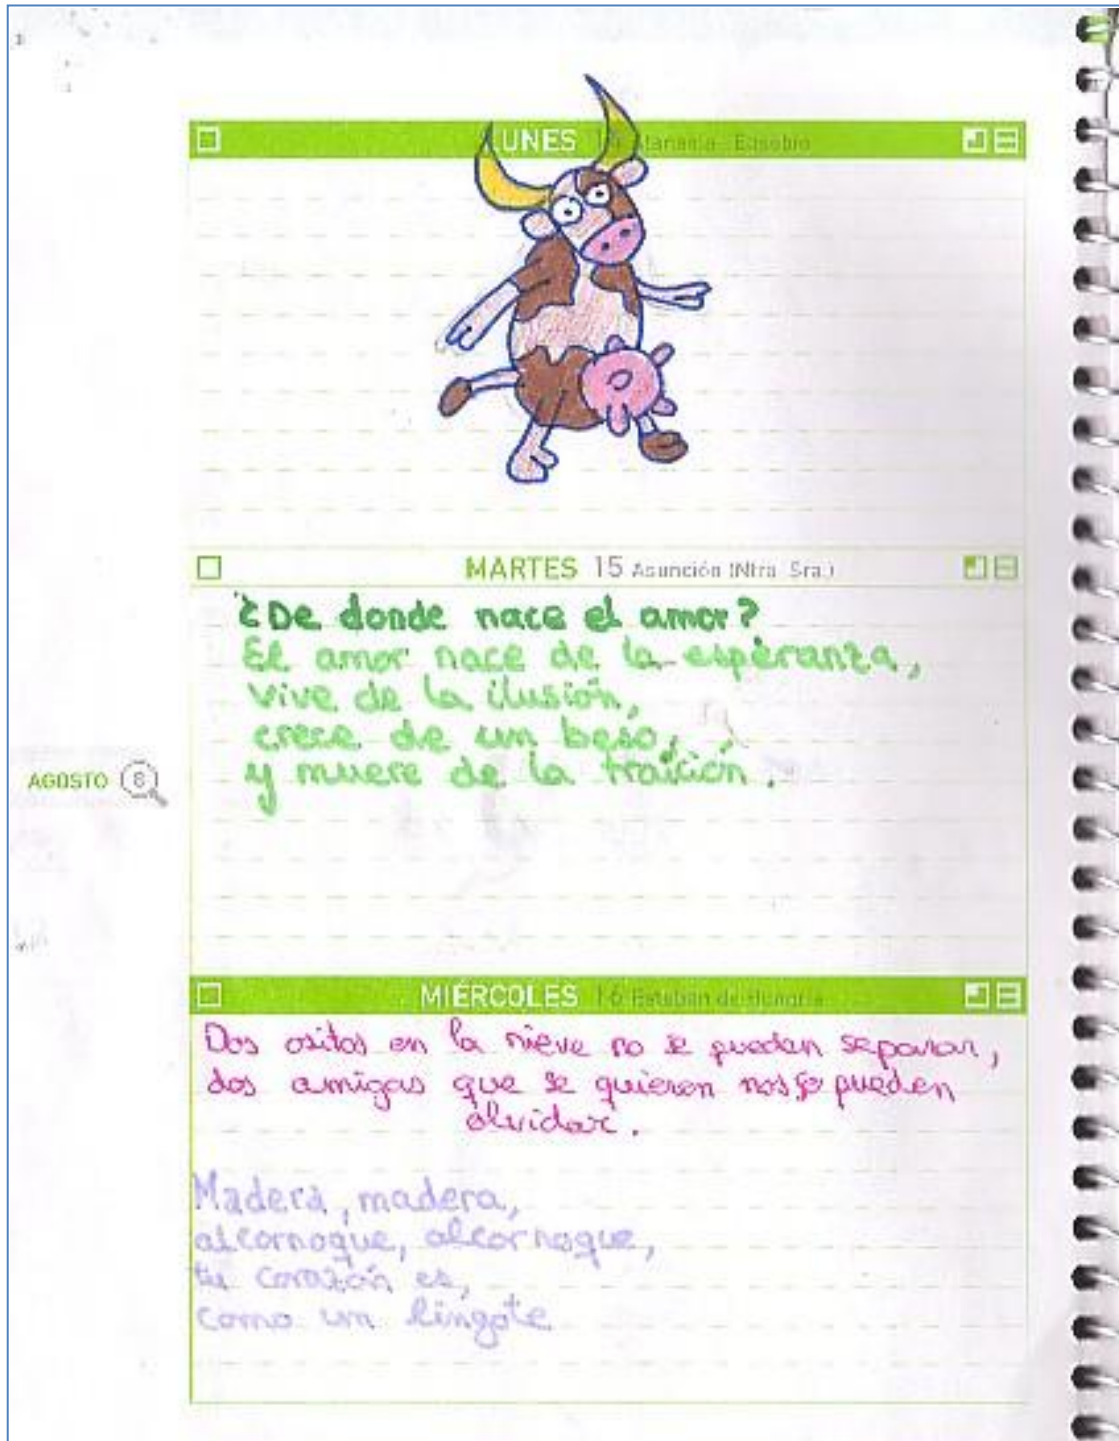 LUNES 14 Atanasia Eusebio
MARTES 15 Asunción (Ntra. Sra.)
¿De donde nace el amor?
El amor nace de la esperanza,
vive de la ilusión,
crece de un beso,
y muere de la traición.
AGOSTO 8
MIÉRCOLES 16 Esteban de Hungría
Dos ositos en la nieve no se pueden separar,
dos amigas que se quieren nos se pueden
olvidar.
Madera, madera,
alcornoque, alcornoque,
tu corazón es,
como un lingote